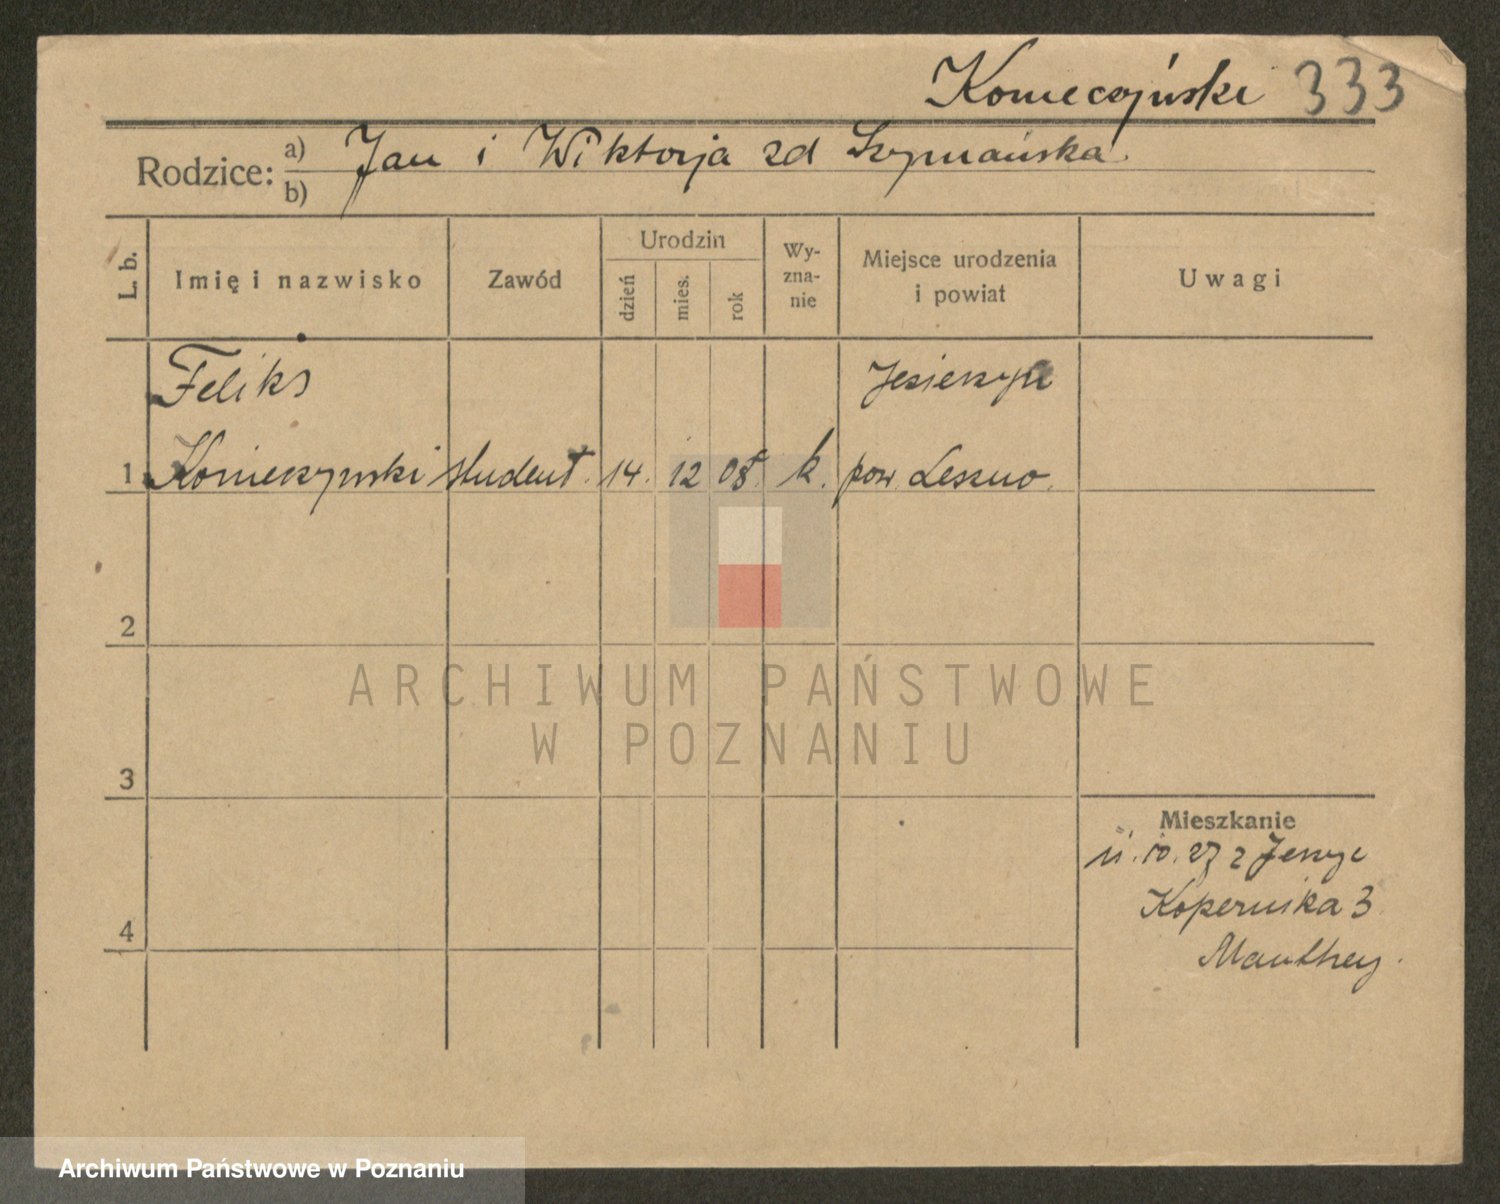 Konieczyński 333
Rodzice: a) Jan i Wiktorja zd Szymańska.
b)
L. b.
Imię i nazwisko
Zawód
Urodzin
dzień
mies.
rok
Wy-
zna-
nie
Miejsce urodzenia
i powiat
Uwagi
Feliks
1 Konieczynski student. 14. 12 08. k. pow. Leszno.
2
ARCHIWUM PAŃSTWOWE
W POZNANIU
3
Mieszkanie
10. 27 z
4
Kopernika 3
Manthey.
Archiwum Państwowe w Poznaniu